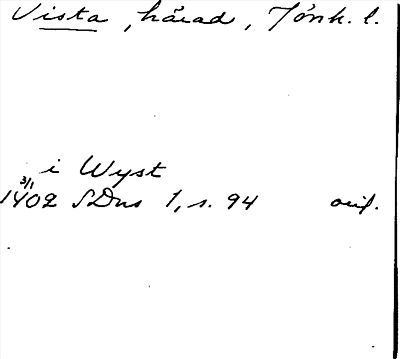 Vista, härad, Jönk. l.
i Wyst
3/1
1402 SDns 1, s. 94 orig.